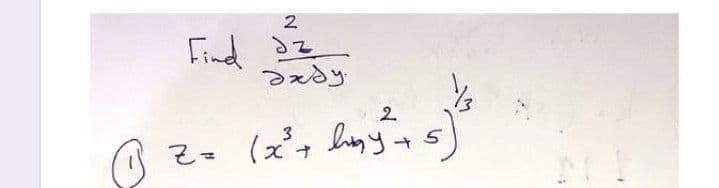 Find ∂²z
∂x∂y
① z = (x³ + ln y² + 5)^1/3